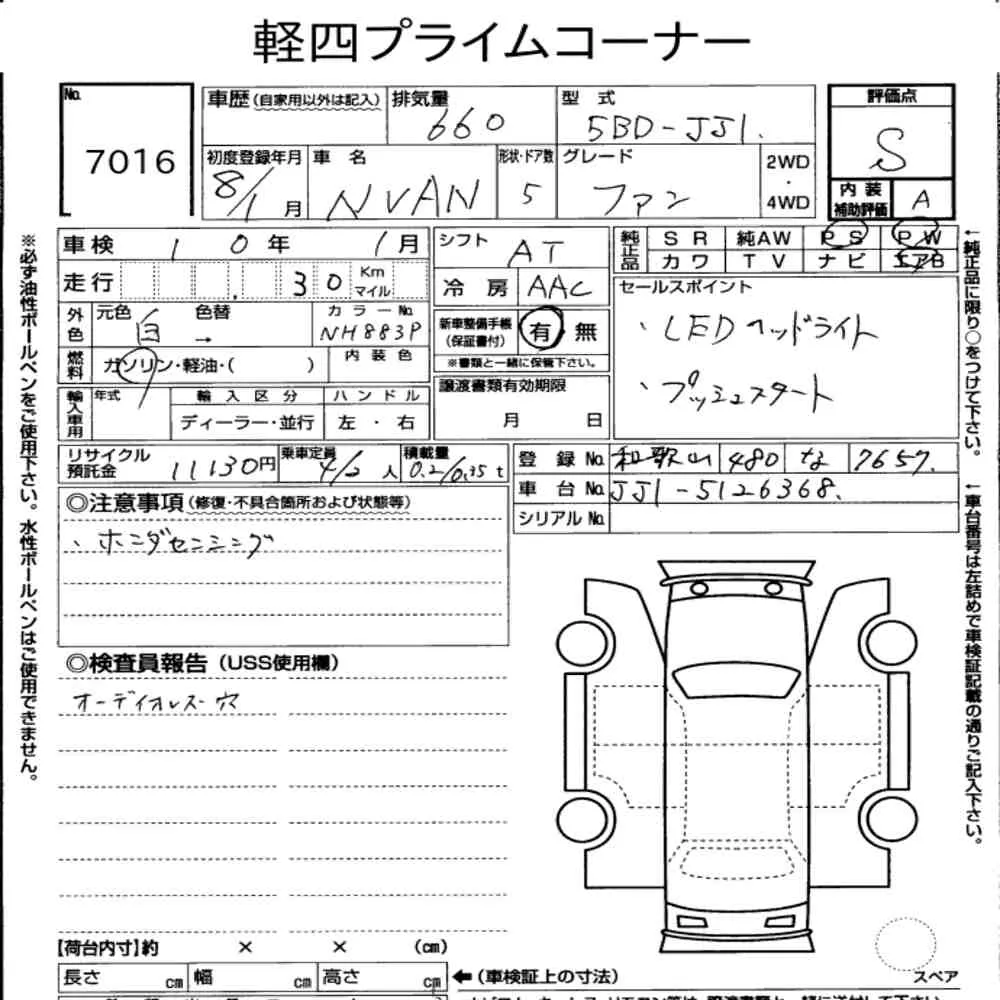 軽四プライムコーナー
No. 7016
車歴(自家用以外は記入) 排気量 660 型 式 5BD-JJ1.
初度登録年月 8/1月 車 名 N VAN 形状・ドア数 5 グレード ファン 2WD・4WD
評価点 S
内装補助評価 A
車検 10年 1月
走行 30 Km マイル
外色 元色 白 色替 → カラーNo. NH883P
燃料 ガソリン・軽油・( ) 内装色
輸入車用 年式 輸入区分 ディーラー・並行 ハンドル 左・右
シフト AT
冷房 AAC
新車整備手帳(保証書付) 有 無
※書類と一緒に保管下さい。
譲渡書類有効期限 月 日
純正品 SR 純AW PS PW
カワ TV ナビ エアB
セールスポイント
・LEDヘッドライト
・プッシュスタート
リサイクル預託金 11130円 乗車定員 4/2人 積載量 0.2/0.35t
登録No. 和歌山 480 な 7657.
車台No. JJ1-5126368.
シリアルNo.
◎注意事項(修復・不具合箇所および状態等)
・ホンダセンシング
◎検査員報告(USS使用欄)
オーディオレス穴
【荷台内寸】約 × × (cm)
長さ cm 幅 cm 高さ cm ←(車検証上の寸法)
スペア
※必ず油性ボールペンをご使用下さい。水性ボールペンはご使用できません。
←純正品に限り○をつけて下さい。
←車台番号は左詰めで車検証記載の通りご記入下さい。